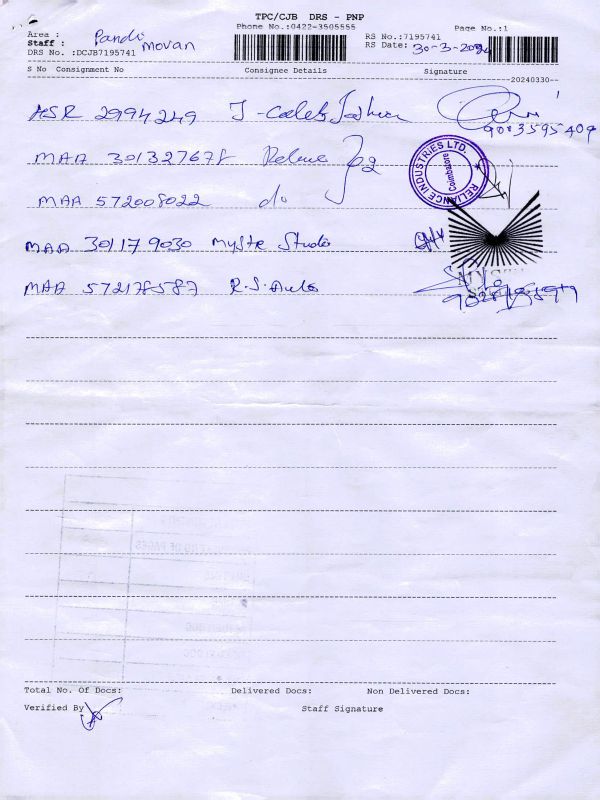 TPC/CJB DRS - PNP
Phone No.:0422-3505555
Page No.:1
Area :
Staff : Pandi
movan
RS No.:7195741
RS Date: 30-3-2024
DRS No. :DCJB7195741
S No Consignment No Consignee Details Signature
20240330
ASR 2994249
9003595409
MAA 301327678
RELIANCE INDUSTRIES LTD.
Coimbatore
MAA 572008022 do
MAA 301179030 Mystr Studio
MAA 572178587 R.S. Auto
Total No. Of Docs: Delivered Docs: Non Delivered Docs:
Verified By Staff Signature